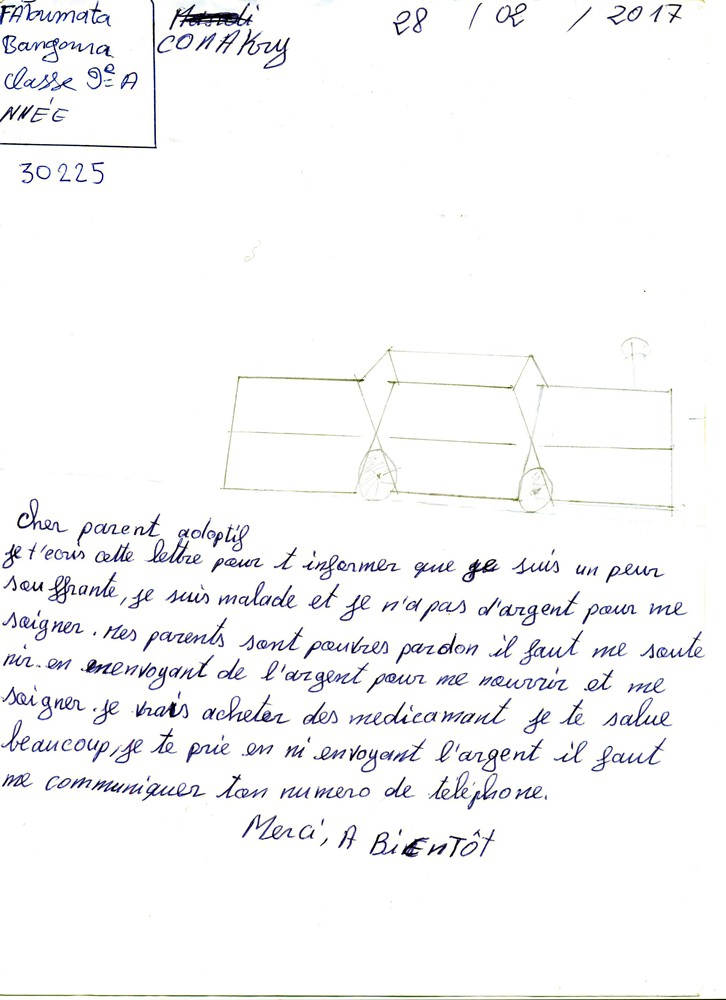 FATOumata
Bangoura
classe 9e A
NNÉE
CONAKry
28 / 02 / 2017
30225
cher parent adoptif
je t'ecris cette lettre pour t informer que je suis un peur
souffrante, je suis malade et je n'a pas d'argent pour me
soigner. Mes parents sont pauvres pardon il faut me soute
nir. en envoyant de l'argent pour me nourrir et me
soigner. je vrais acheter des medicamant je te salue
beaucoup, je te prie en ni envoyant l'argent il faut
me communiquer ton numero de telephone.
Merci, A BiEnTÔT